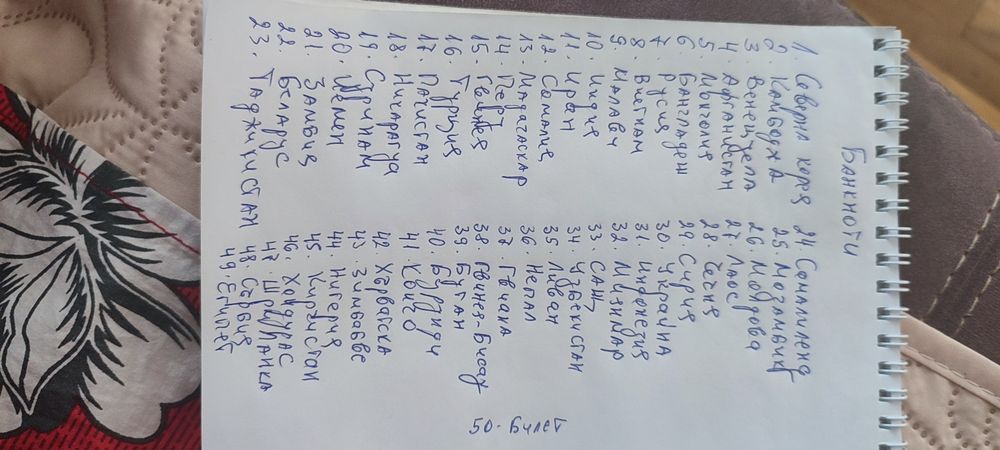 Банкноти
1. Северна корея
2. Камбоджа
3. Венецуела
4. Афганистан
5. Монголия
6. Бангладеш
7. Русия
8. Виетнам
9. Малави
10. Индия
11. Иран
12. Сомалия
13. Мадагаскар
14. Перу
15. Гвинея
16. Турция
17. Пакистан
18. Никарагуа
19. Суринам
20. Йемен
21. Замбия
22. Беларус
23. Таджикистан
24 Сомалиленд
25. Мозамбик
26 Молдова
27 Лаос
28 Чечня
29. Сирия
30. Украйна
31. Индонезия
32 Мианмар
33 САЩ
34 Узбекистан
35 Ливан
36 Непал
37 Гвиана
38. Гвинея-Бисау
39. Бутан
40 Бурунди
41
42 Хърватска
43 Зимбабве
44. Нигерия
45
46. Хондурас
47. Шриланка
48. Сърбия
49 Египет
50. Билет